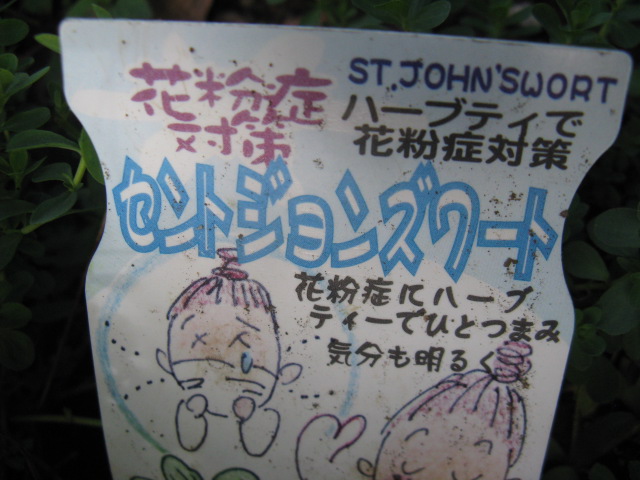 花粉症
対策
ST.JOHN'SWORT
ハーブティで
花粉症対策
セントジョンズワート
花粉症にハーブ
ティーでひとつまみ
気分も明るく